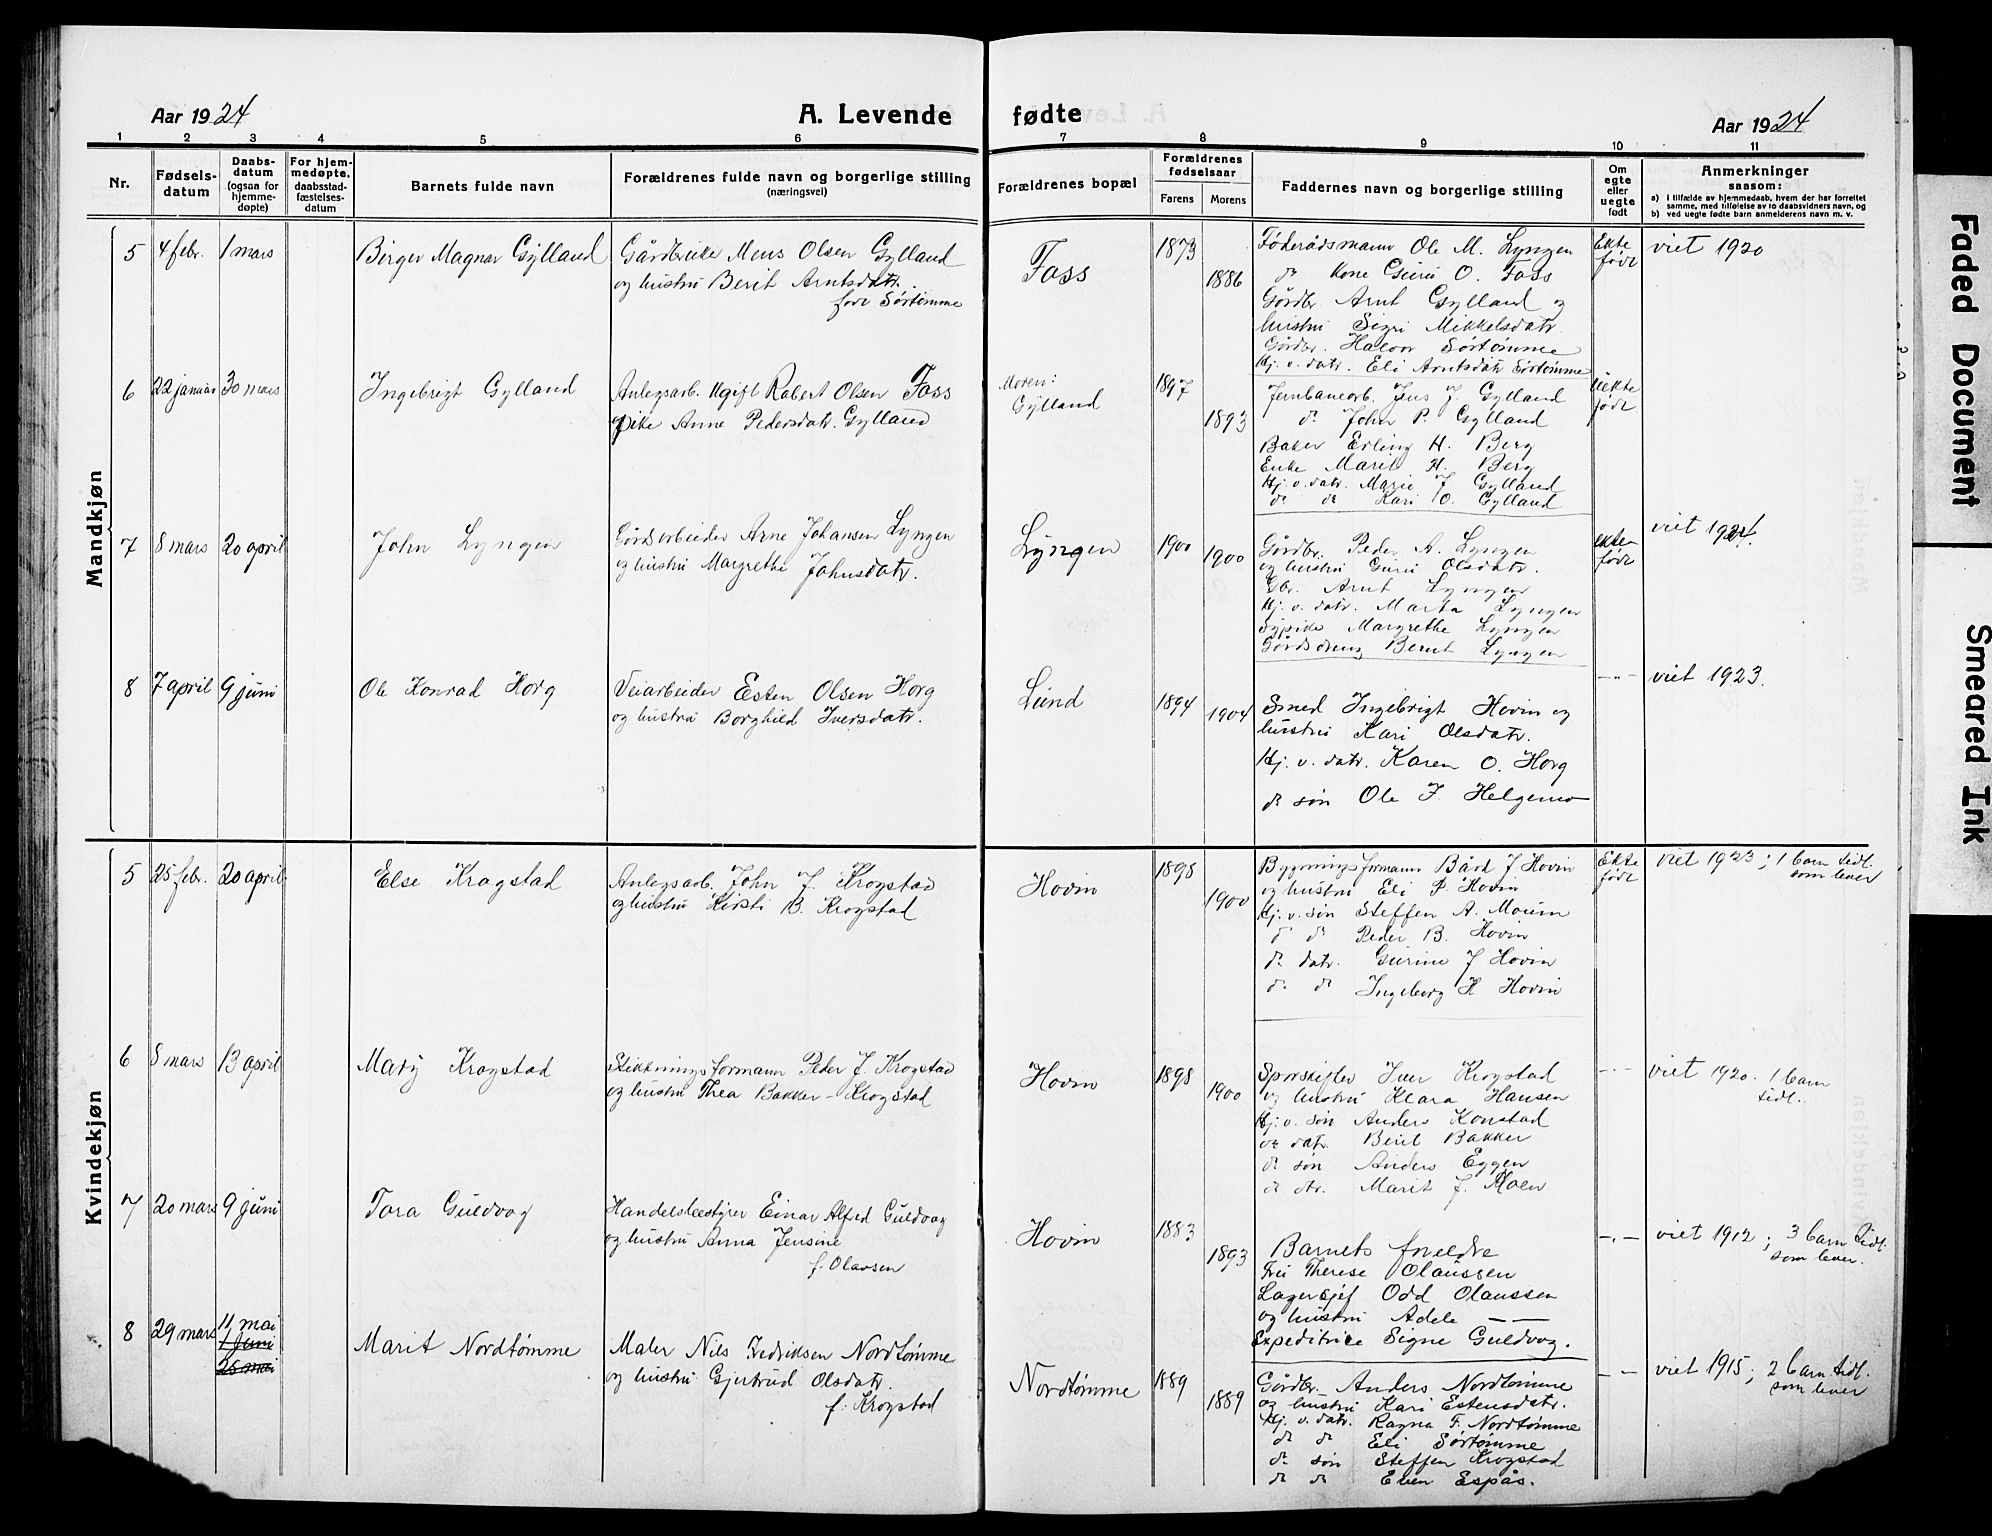 Aar 1924
A. Levende fødte
Aar 1924
1 2 3 4 5 6 7 8 9 10 11
Nr.
Fødselsdatum
Daabsdatum (ogsaa for hjemmedøpte)
For hjemmedøpte, daabsstadfæstelsesdatum
Barnets fulde navn
Forældrenes fulde navn og borgerlige stilling (næringsvei)
Forældrenes bopæl
Forældrenes fødselsaar
Farens Morens
Faddernes navn og borgerlige stilling
Om egte eller uegte født
Anmerkninger saasom:
a) i tilfælde av hjemmedaab, hvem der har forrettet samme, med tilføielse av to daabsvidners navn, og
b) ved uegte fødte barn anmelderens navn m. v.
Mandkjøn
5 4 febr. 1 mars
Birger Magnar Gylland
Gårdbruke Mons Olsen Gylland
og hustru Berit Arntsdatr.
født Sørtømme
Foss
1873
1886
Føderådsmann Ole M. Lyngen
do kone Guru O. Foss
Gårdbr. Arnt Gylland og
hustru Sigri Mikkelsdatr.
Gårdbr. Halvor Sørtømme
Hj. v. datr. Eli Arntsdatr Sørtømme
Ekte født
viet 1920
6 22 januar 30 mars
Ingebrigt Gylland
Anlegsarb. Ugift Robert Olsen Foss
Pike Anne Pedersdatr. Gylland
Moren:
Gylland
1897
1893
Jernbanearb. Jens J. Gylland
do John P. Gylland
Baker Erling H. Berg
Enke Marit H. Berg
Hj. v. datr. Marie J Gylland
do do Kari O. Gylland
Uekte født
7 8 mars 20 april
John Lyngen
Gårdsarbeider Arne Johansen Lyngen
og hustru Margrethe Johnsdatr.
Lyngen
1900
1900
Gårdbr. Peder A. Lyngen
og hustru Guru Olsdatr.
Gbr. Arnt Lyngen
Hj. v. datr. Marta Lyngen
Sypike Margrethe Lyngen
Gårdsdreng Bernt Lyngen
ekte født
viet 1924.
8 7 april 9 juni
Ole Konrad Horg
Veiarbeider Esten Olsen Horg
og hustru Borghild Iversdatr.
Lund
1894
1904
Smed Ingebrigt Hovin og
hustru Kari Olsdatr.
Hj. v. datr. Karen O. Horg
do søn Ole J. Helgemo
— „ —
viet 1923.
Kvindekjøn
5 25 febr. 20 april
Else Krogstad
Anlegsarb. John J. Krogstad
og hustru Kirsti B. Krogstad
Hovin
1898
1900
Bygningsformann Bård J Hovin
og hustru Eli P. Hovin
Hj. v. søn Steffen A. Moum
d do Peder B. Hovin
do datr. Gurine J Hovin
do do Ingeborg H Hovin
Ekte født
viet 1923; 1 barn tidl.
som lever
6 8 mars 13 april
Mary Krogstad
Stikningsformann Peder J. Krogstad
og hustru Thea Bakker - Krogstad
Hovin
1898
1900
Sporskifter Iver Krogstad
og hustru Klara Hansen
Hj. v. søn Anders Konstad
do datr. Berit Bakker
do søn Anders Eggen
do dtr. Marit J. Moen
- - -
viet 1920. 1 barn
tidl.
7 20 mars 9 juni
Tora Guldvog
Handelsbestyrer Einar Alfred Guldvog
og hustru Anna Jensine
f. Olavsen
Hovin
1883
1893
Barnets foreldre
Fru Therese Olaussen
Lagersjef Odd Olaussen
og hustru Adele — —
Expeditrice Signe Guldvog.
— „ —
viet 1912; 3 barn tidl.
som lever.
8 29 mars 11 mai
1 juni
25 mai
Marit Nordtømme
Maler Nils Fredriksen Nordtømme
og hustru Gjertrud Olsdatr.
f. Krogstad
Nordtømme
1889
1889
Gårdbr. Anders Nordtømme
og hustru Kari Estensdatr.
Hj. v. datr. Ragna F. Nordtømme
do do Eli Sørtømme
do søn Steffen Krogstad
do do Even Espås.
— —
viet 1915; 2 barn tidl.
som lever
Faded Document
Smeared Ink